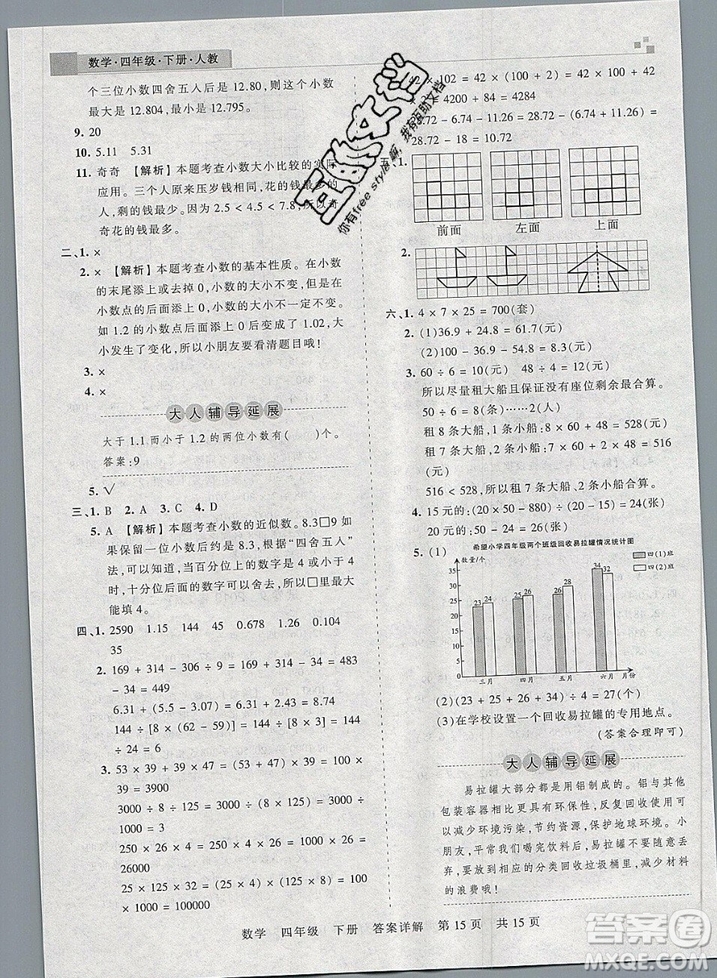 数学·四年级·下册·人教
个三位小数四舍五入后是 12.80,则这个小数
最大是 12.804,最小是 12.795。
9. 20
10. 5.11 5.31
11. 奇奇 【解析】本题考查小数大小比较的实际
应用。三个人原来压岁钱一样多,花的钱最少的
人,剩的钱最多。因为 2.5 < 4.5 < 7.8,所以奇
奇花的钱最多。
二、1. ×
2. × 【解析】本题考查小数的基本性质。在小数
的末尾添上或者去掉 0,小数的大小不变。例
如:1.2 的小数点后面添上 0 就变成了 1.02,大
小发生了变化,所以小朋友要看清题目哦!
3. ×
4. ×
大人辅导延展
大于 1.1 而小于 1.2 的两位小数有( )个。
答案:9
5. √
三、1. B 2. A 3. C 4. D
5. A 【解析】本题考查小数的近似数。8.3□9 如
果保留一位小数后约是 8.3,根据“四舍五入”法,
可以知道,当百分位上的数字是 4 或者小于 4
时,十分位上的数字可以不变,所以□里最大
能填 4。
四、1. 2590 1.15 144 45 0.678 1.26 0.104
35
2. 169 + 314 - 306 ÷ 9 = 169 + 314 - 34 = 483
- 34 = 449
6.31 + (5.5 - 3.18) = 6.31 + 2.32 = 8.63
144 ÷ [8 × (62 - 59)] = 144 ÷ [8 × 3] =
144 ÷ 24 = 6
3. 53 × 39 + 39 × 47 = (53 + 47) × 39 = 100 ×
39 = 3900
3000 ÷ 8 ÷ 125 = 3000 ÷ (8 × 125) = 3000 ÷
1000 = 3
250 × 26 × 4 = 250 × 4 × 26 = 1000 × 26 =
26000
25 × 125 × 32 = 25 × 125 × (4 × 8) = (25 ×
4) × (125 × 8) = 100 × 1000 = 100000
× 102 = 42 × (100 + 2) = 42 × 100 +
= 4200 + 84 = 4284
28.72 - 7.14 - 10.86 = 28.72 - (7.14 + 10.86) =
28.72 - 18 = 10.72
五、1.
前面 左面 上面
2.
六、1. 4 × 7 × 25 = 700(套)
2. (1)36.9 + 24.8 = 61.7(元)
(2)100 - 36.9 - 24.8 = 38.3(元)
3. 60 ÷ 6 = 10(元) 48 ÷ 4 = 12(元)
所以尽量租大船且保证没有座位剩余最合算。
50 ÷ 6 = 8(条)……2(人)
租 8 条大船,1 条小船:8 × 60 + 48 = 528(元)
租 7 条大船,2 条小船:7 × 60 + 2 × 48 = 516
(元)
516 < 528,所以租 7 条大船,2 条小船最合算。
4. 15元的:(20 × 50 - 870) ÷ (20 - 15) = 26(张)
20元的:50 - 26 = 24(张)
5. (1) 希望小学四年级两个班级回收易拉罐情况统计图
数量/个
四(1)班
四(2)班
35
30
25
20
15
10
5
0
23 24 25 26 26 28 34 32
三月 四月 五月 六月 月份
(2)(23 + 25 + 26 + 34) ÷ 4 = 27(个)
(3)在学校设置一个回收易拉罐的专用地点。
(答案合理即可)
大人辅导延展
易拉罐大部分都是用铝制成的。铝与其他
包装容器相比更具有环保性,反复回收使用可
以减少环境污染,节约资源,保护地球环境。小
朋友,平常我们喝完饮料后,易拉罐不要乱扔,
要放到相应的分类回收垃圾桶里,减少对材料
的浪费哦!
数学 四年级 下册 答案详解 第 15 页 共 15 页
答案圈
MXQE.COM